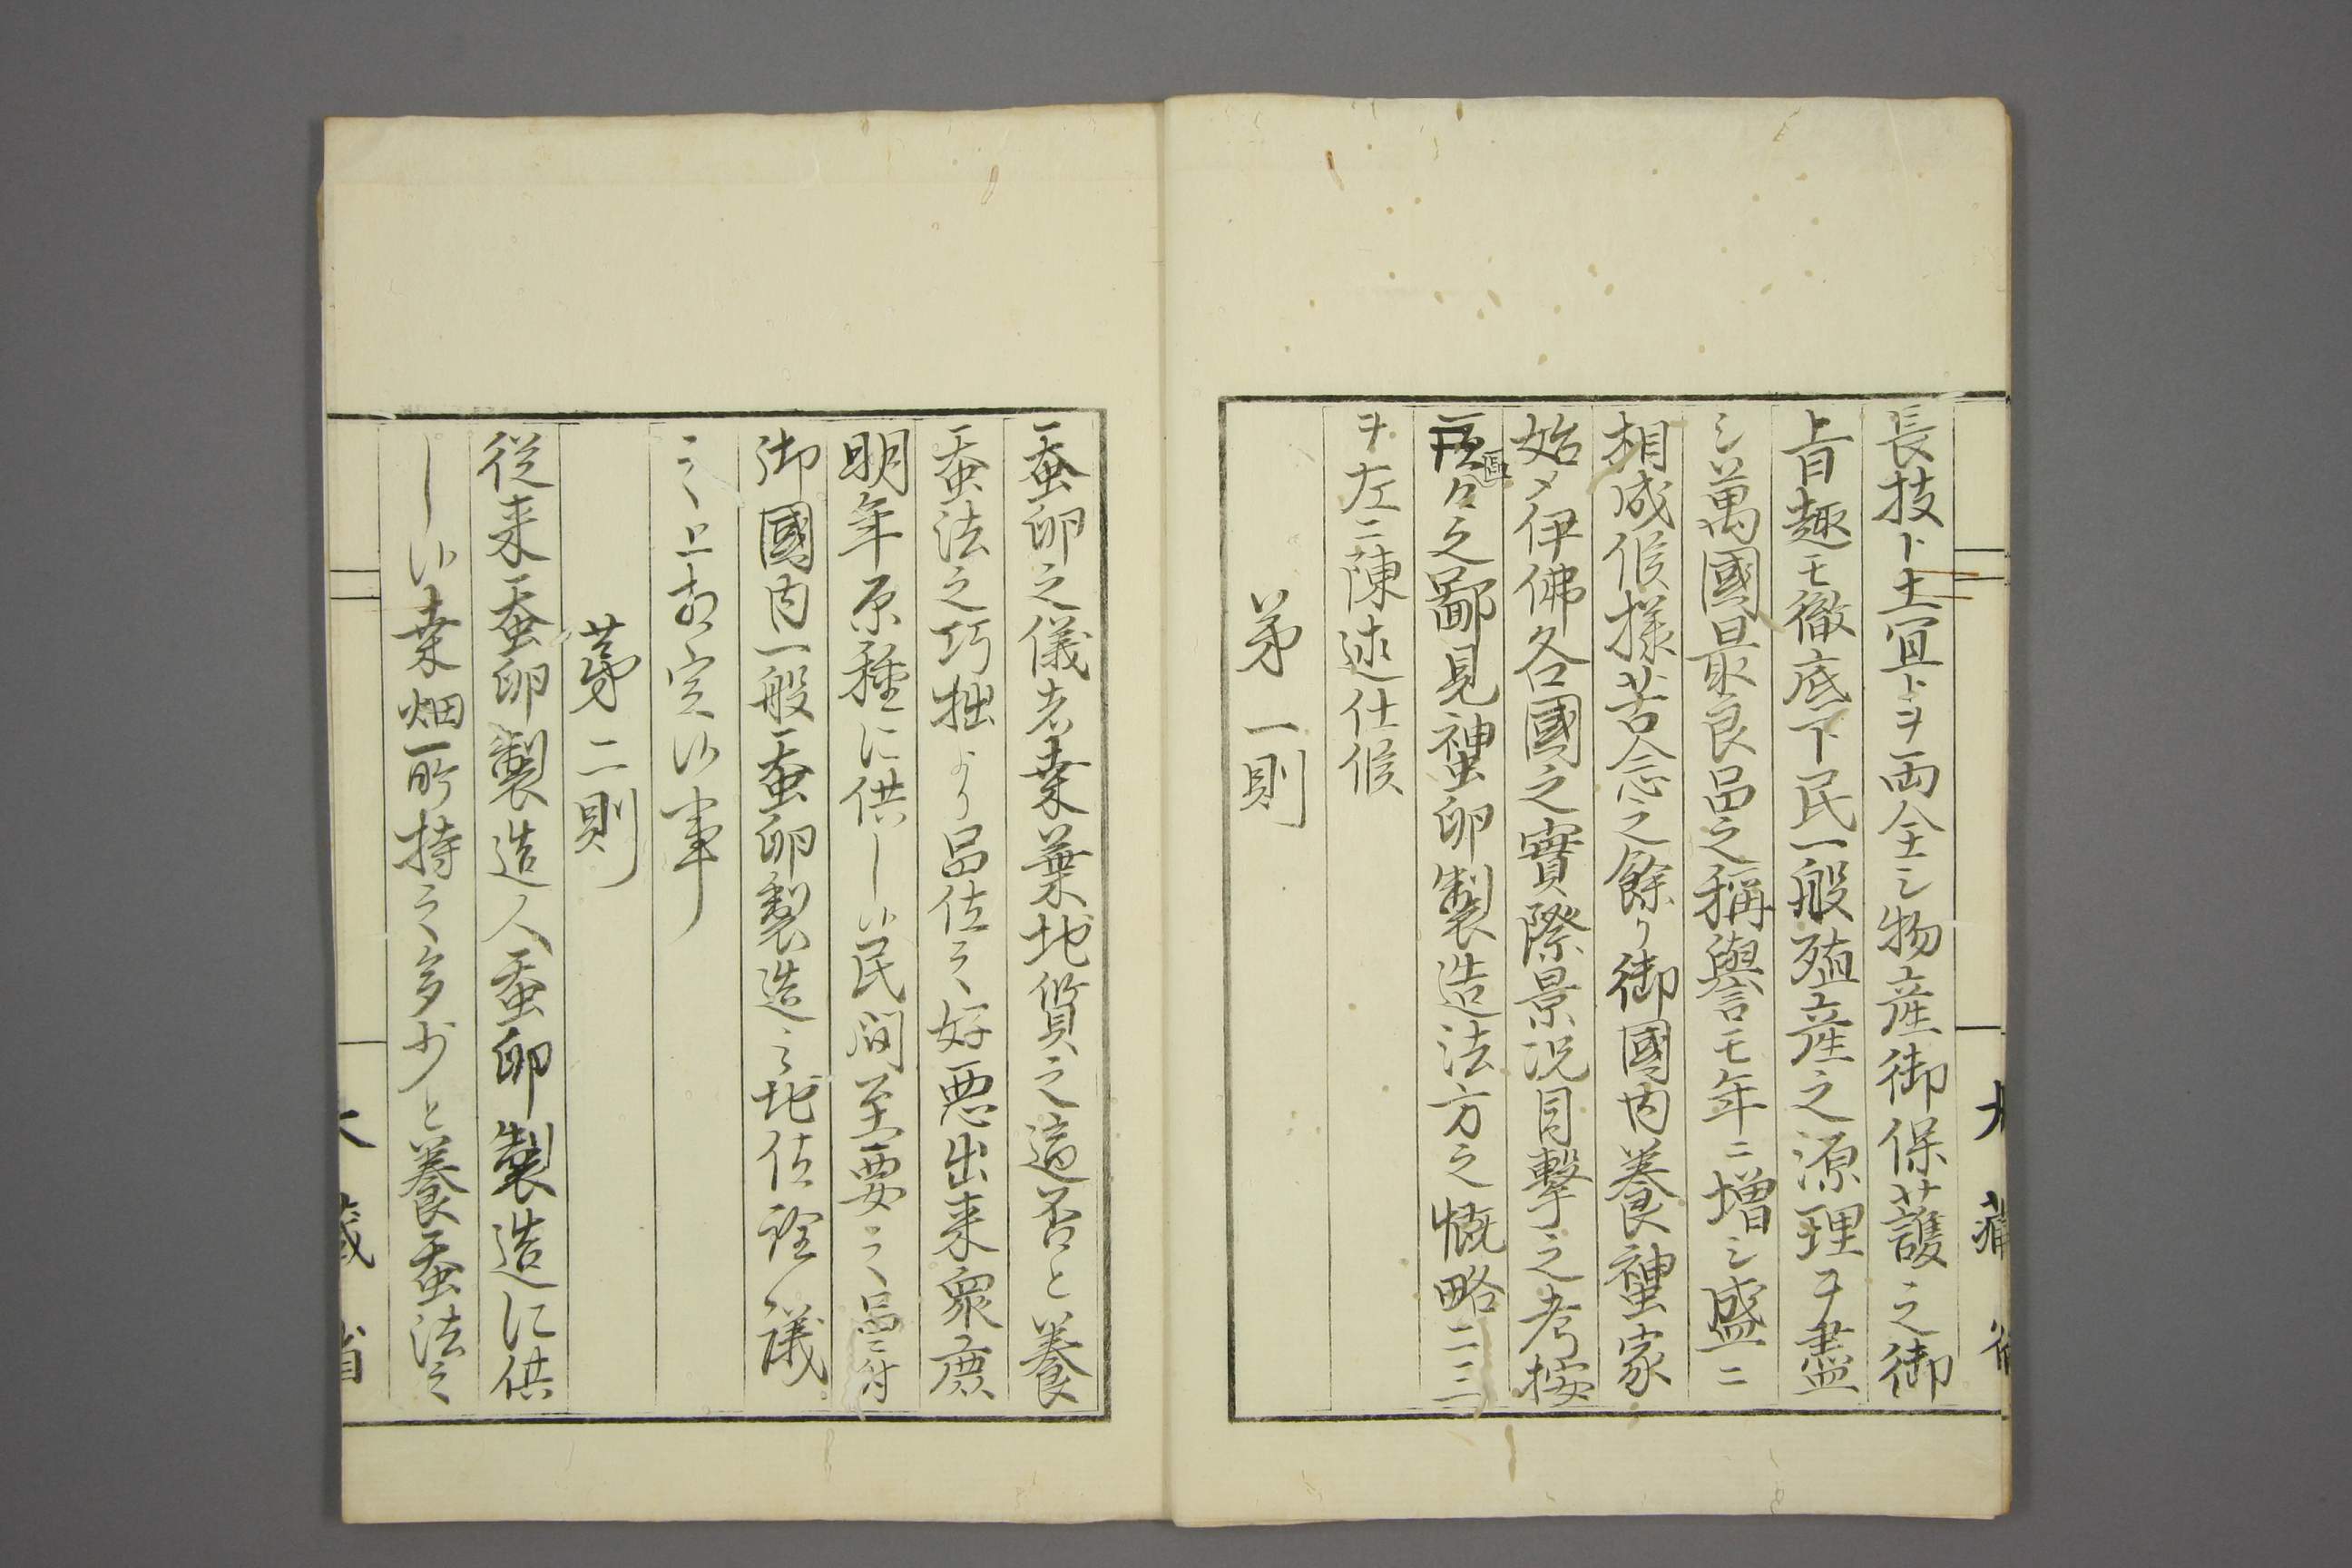 長技ト土宜トヲ両全シ物産御保護之御
旨趣モ徹底下民一般殖産之源理ヲ盡
シ萬國最良品之稱譽モ年ニ増シ盛ニ
相成候様苦念之餘リ御國内養蠶家
始メ伊佛各國之實際景況目撃之考按
區々之鄙見蠶卵製造法方之慨略二三
ヲ左ニ陳述仕候
第一則
蚕卵之儀者桒葉地質之適否と養
蚕法之巧拙より品位之好悪出来衆庶
明年原種に供し候民間至要之品ニ付
御國内一般蚕卵製造之地位詮議
之上相定候事
第二則
従来蚕卵製造人蚕卵製造に供
し候桒畑所持之多少と養蚕法之
大藏省